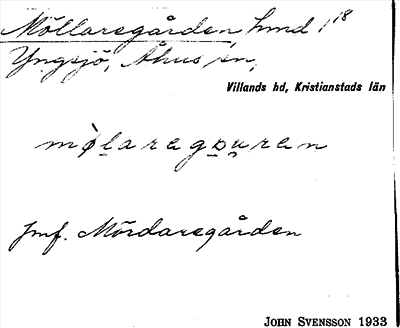 Möllaregården, hmd 1/18
Yngsjö, Åhus sn,
Villands hd, Kristianstads län
mø̀l̠arega̠u̯ren
Jmf. Mördaregården
JOHN SVENSSON 1933